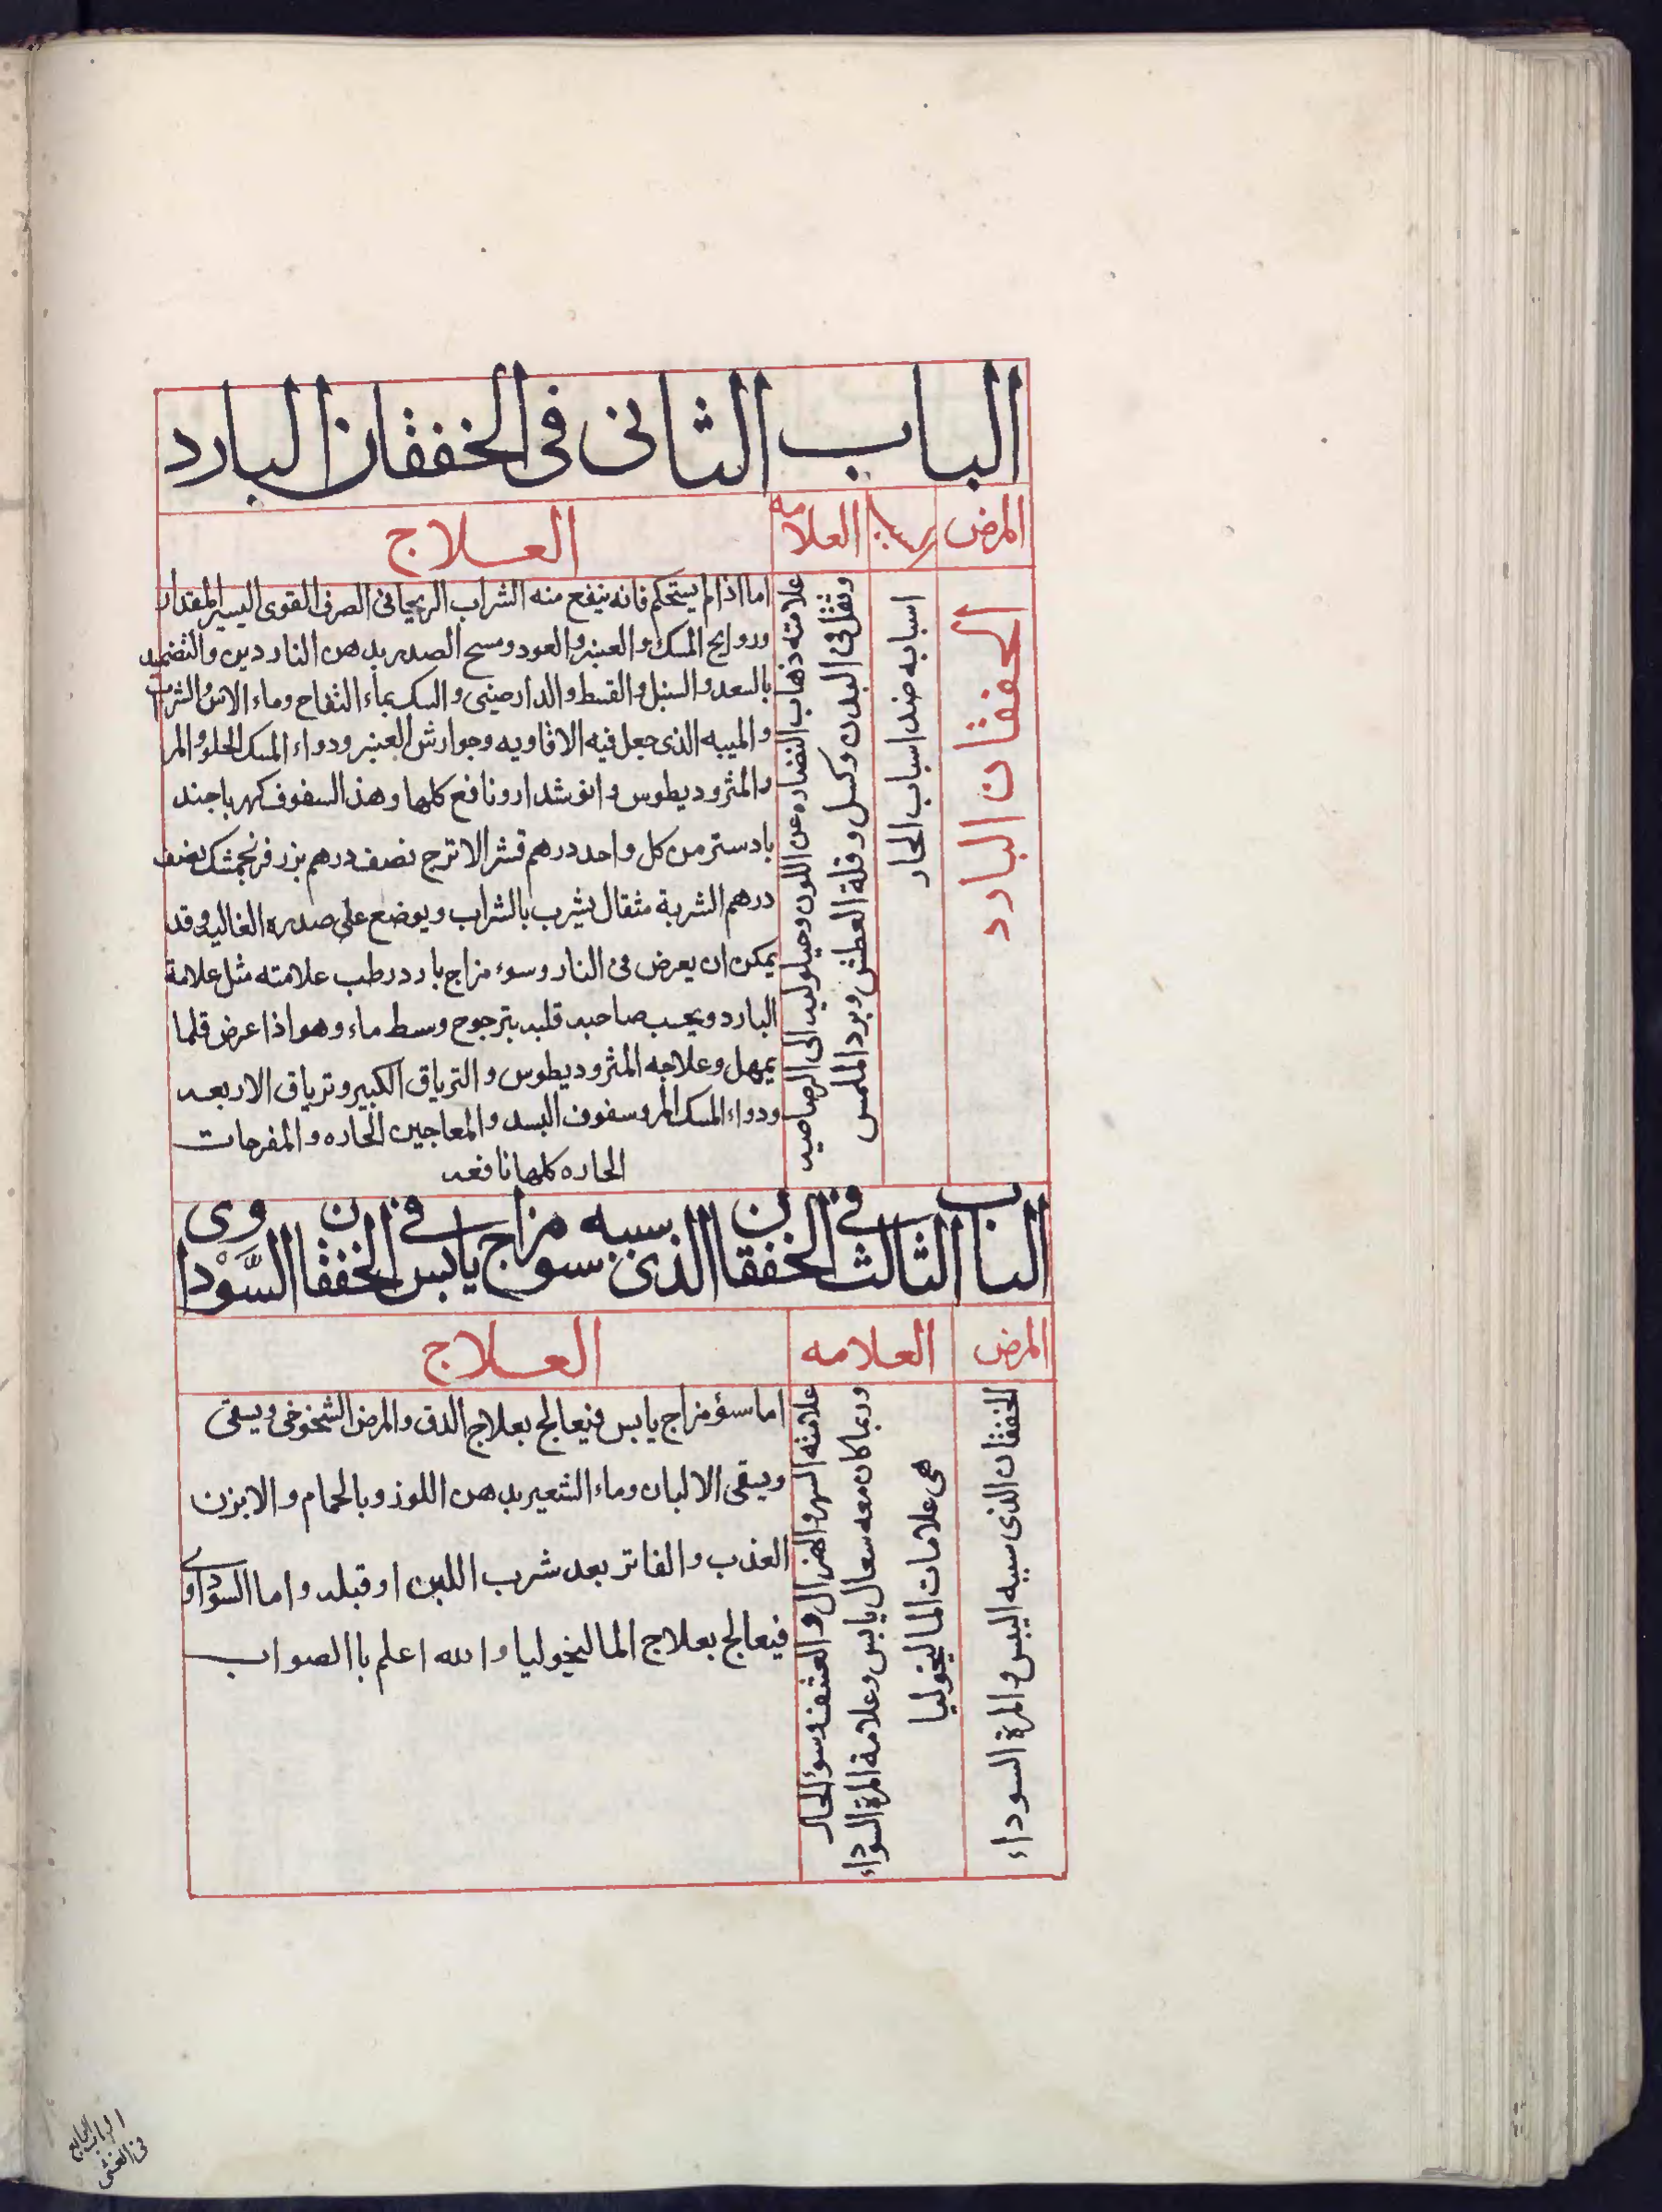 الباب الثانى فى الخفقان البارد
المرض
العلامه
العلاج
الخفقان البارد
اسبابه ضد اسباب الحار
علامته ذهاب النضاره عن اللون وحيلوليه الى الرصاصيه
وثقل فى البدن وكسل وقلة العطش وبرد الملمس
اما اذا لم يستحكم فانه ينفع منه الشراب الريحانى الصرف القوى اليسير المقدار
وروايح المسك والعنبر والعود ومسح الصدر بدهن الناردين والتضميد
بالسعد والسنبل والقسط والدارصينى والسك بماء التفاح وماء الاس والشراب
والميبه الذى جعل فيه الافاويه وجوارش العنبر ودواء المسك الحلو والمر
والمثروديطوس وانوشدارو نافع كلها وهذ السفوف كهربا جند
بادستر من كل واحد درهم قشر الاترج نصف درهم بزر فرنجمشك نصف
درهم الشربة مثقال يشرب بالشراب ويوضع على صدره الغاليه وقد
يمكن ان يعرض فى النار وسوء مزاج بارد رطب علامته مثل علامة
البارد ويحسب صاحبه قلبه يترجوج وسط ماء وهو اذا عرض قلما
يمهل وعلاجه المثروديطوس والترياق الكبير وترياق الاربعه
ودواء المسك المر وسفوف البسد والمعاجين الحاره والمفرحات
الحاره كلها نافعه
الباب الثالث فى الخفقان الذى سببه سو مزاج يابس فى الخفقان السَّوْداوى
المرض
العلامه
العلاج
الخفقان الذى سببه اليبس والمرة السوداء
علامته السهر والهزال و وسوء الحال
وربما كان معه سعال يابس وعلامة المرة السوداء
هى علامات الماليخوليا
اما سؤ مزاج يابس فيعالج بعلاج الدق والمرض الشخوخى ويسقى
ويسقى الالبان وماء الشعير بدهن اللوز وبالحمام والابزن
العذب والفاتر بعد شرب اللبن او قبله واما السوداوى
فيعالج بعلاج الماليخوليا والله اعلم باالصواب
الباب الرابع
فى الغشى